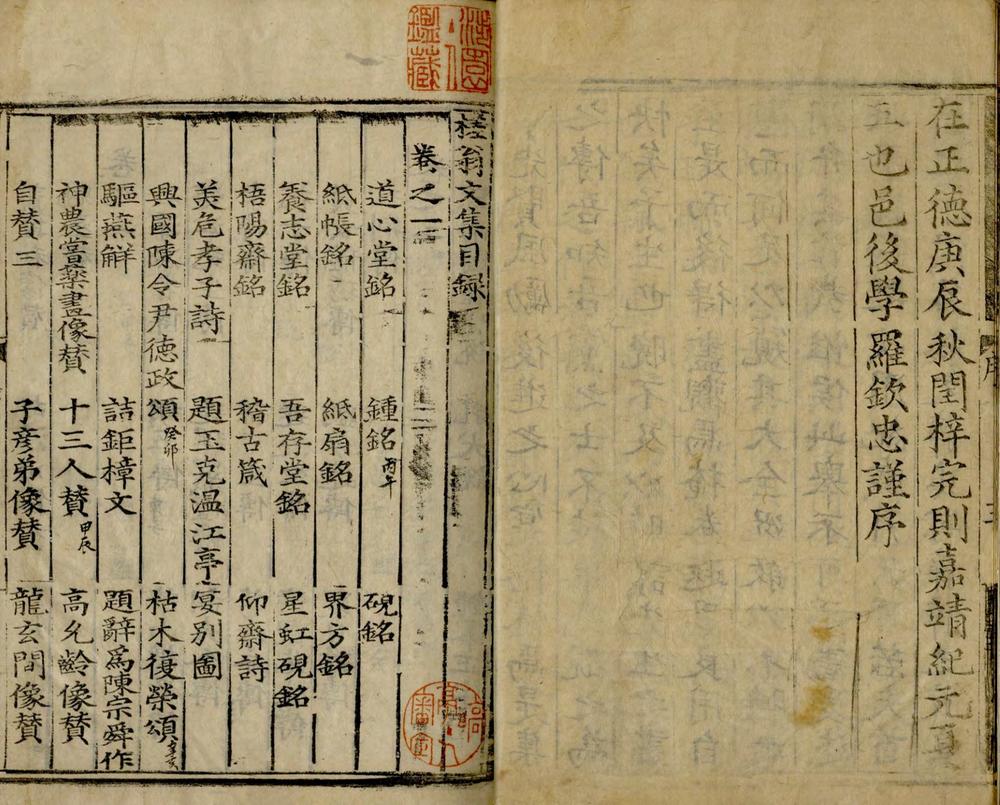 在正德庚辰秋閏梓完則嘉靖紀元夏
五也邑後學羅欽忠謹序
翁文集目錄
卷之一
道心堂銘 鍾銘丙午 硯銘
紙帳銘 紙扇銘 界方銘
養志堂銘 吾存堂銘 星虹硯銘
梧陽齋銘 稽古箴 仰齋詩
美危孝子詩 題玉克溫江亭宴別圖
興國陳令尹德政頌癸卯 枯木復榮頌辛亥
驅燕觧 詰鉅樟文 題辭爲陳宗舜作
神農嘗藥畫像賛 十三人賛甲辰 高允齡像賛
自賛三 子彥弟像賛 龍玄間像賛
鑑藏